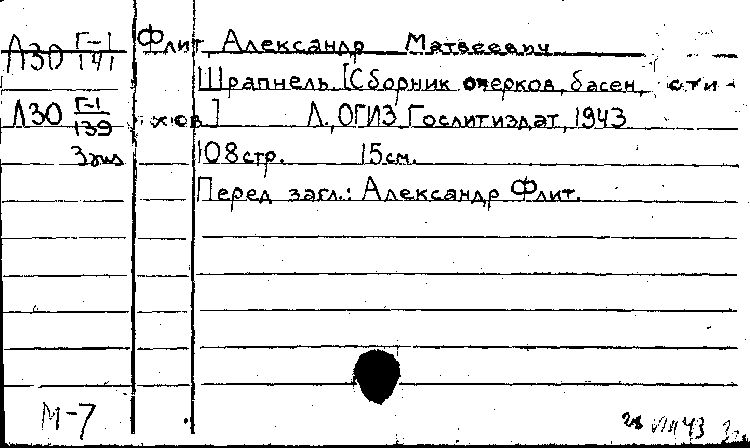 Л30 Г-1/141 Флит, Александр Матвеевич
Шрапнель. [Сборник очерков, басен, сти-
Л30 Г-1/139 хов] Л., ОГИЗ Гослитиздат, 1943
3 экз 108 стр. 15 см.
Перед загл.: Александр Флит.
М-7